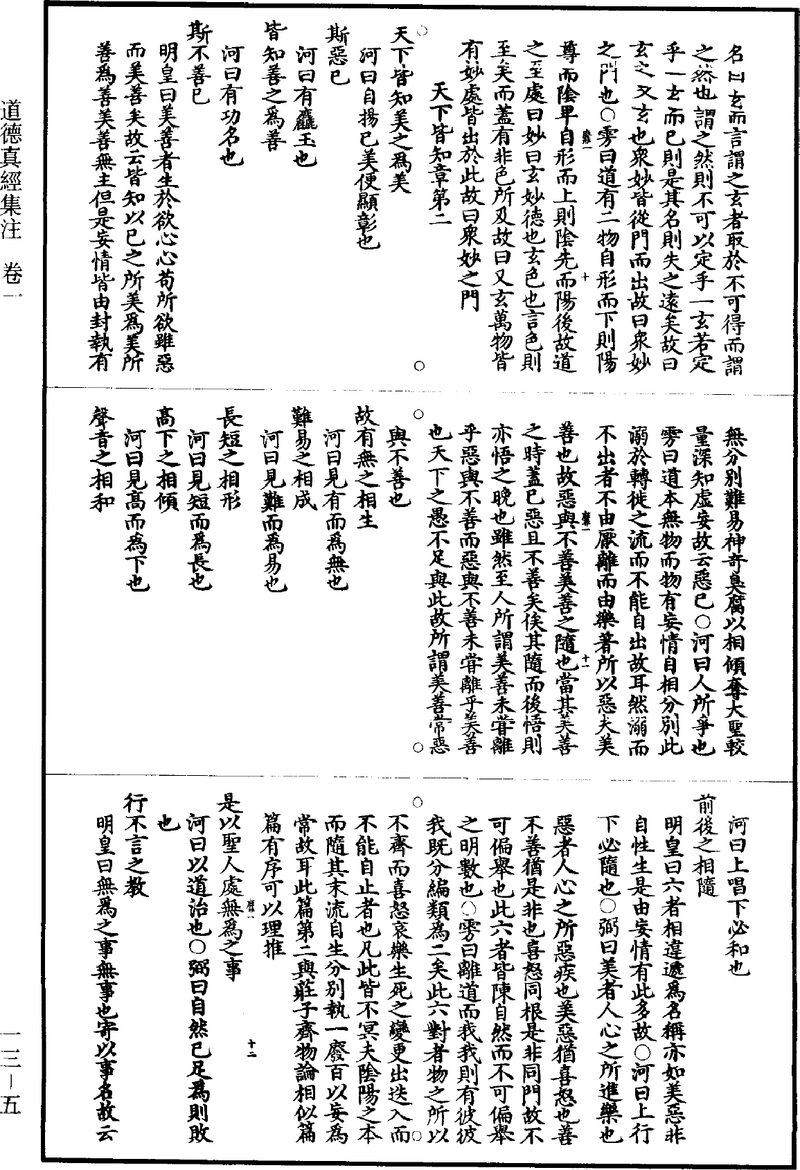 名曰玄而言謂之玄者取於不可得而謂
之然也謂之然則不可以定乎一玄若定
乎一玄而已則是其名則失之遠矣故曰
玄之又玄也衆妙皆從門而出故曰衆妙
之門也○雱曰道有二物自形而下則陽
尊而陰卑自形而上則陰先而陽後故道
之至處曰妙曰玄妙德也玄色也言色則
至矣而蓋有非色所及故曰又玄萬物皆
有妙處皆出於此故曰衆妙之門
天下皆知章第二
天下皆知美之爲美
河曰自揚已美便顯彰也
斯惡已
河曰有危亡也
皆知善之爲善
河曰有功名也
斯不善已
明皇曰美善者生於欲心心苟所欲雖惡
而美善矣故云皆知以已之所美爲美所
善爲善美善無主但是妄情皆由封執有
無分別難易神奇臭腐以相傾奪大聖較
量深知虛妄故云惡已○河曰人所爭也
雱曰道本無物而物有妄情自相分別此
溺於轉徙之流而不能自出故耳然溺而
不出者不由厭離而由樂著所以惡夫美
善也故惡與不善美善之隨也當其美善
之時蓋已惡且不善矣俟其隨而後悟則
亦悟之晚也雖然至人所謂美善未嘗離
乎惡與不善而惡與不善未嘗離乎美善
也天下之愚不足與此故所謂美善常惡
與不善也
故有無之相生
河曰見有而爲無也
難易之相成
河曰見難而爲易也
長短之相形
河曰見短而爲長也
高下之相傾
河曰見高而爲下也
聲音之相和
河曰上唱下必和也
前後之相隨
明皇曰六者相違遞爲名稱亦如美惡非
自性生是由妄情有此多故○河曰上行
下必隨也○弼曰美者人心之所進樂也
惡者人心之所惡疾也美惡猶喜怒也善
不善猶是非也喜怒同根是非同門故不
可偏舉也此六者皆陳自然而不可偏舉
之明數也○雱曰離道而我我則有彼彼
我既分編類爲二矣此六對者物之所以
不齊而喜怒哀樂生死之變更出迭入而
不能自止者也凡此皆不冥夫陰陽之本
而隨其末流自生分別執一廢百以妄爲
常故耳此篇第二與莊子齊物論相似篇
篇有序可以理推
是以聖人處無爲之事
河曰以道治也○弼曰自然已足爲則敗
也
行不言之教
明皇曰無爲之事無事也寄以事名故云
十
十一
十二
道德真經集注　卷一
一三－五